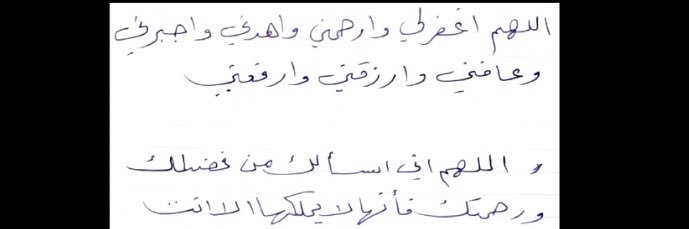 اللهم اغفرلي وارحمني واهدني واجبرني
وعافني وارزقني وارفعني
، اللهم اني اسألك من فضلك
ورحمتك فأنها لا يملكها الا انت